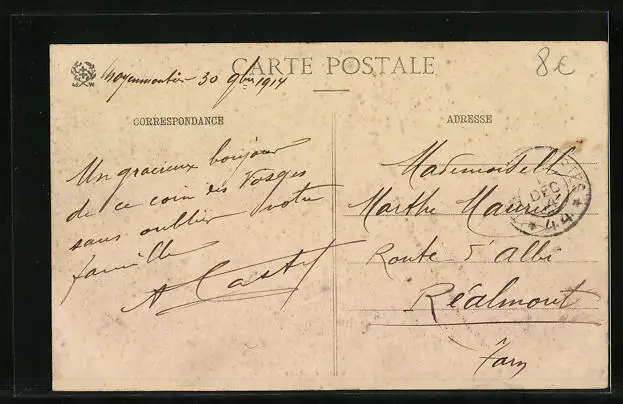 Moyenmoutier 30 9bre 1914
8€
CARTE POSTALE
CORRESPONDANCE
ADRESSE
Un gracieux bonjour
de ce coin des Vosges
sans oublier votre
famille
A Castel
Mademoiselle
Marthe Maurel
Route d'Albi
Réalmont
Tarn
DEC
* 44 *